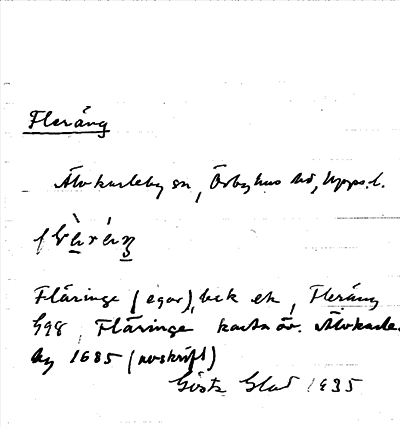 Fleräng
Älvkarleby sn, Örbyhus hd, Upps. l.
Fläringe (egor), bek ek, Fleräng
G98, Fläringe karta öv. Älvkarle-
by 1685 (avskrift)
Gösta Glad 1935